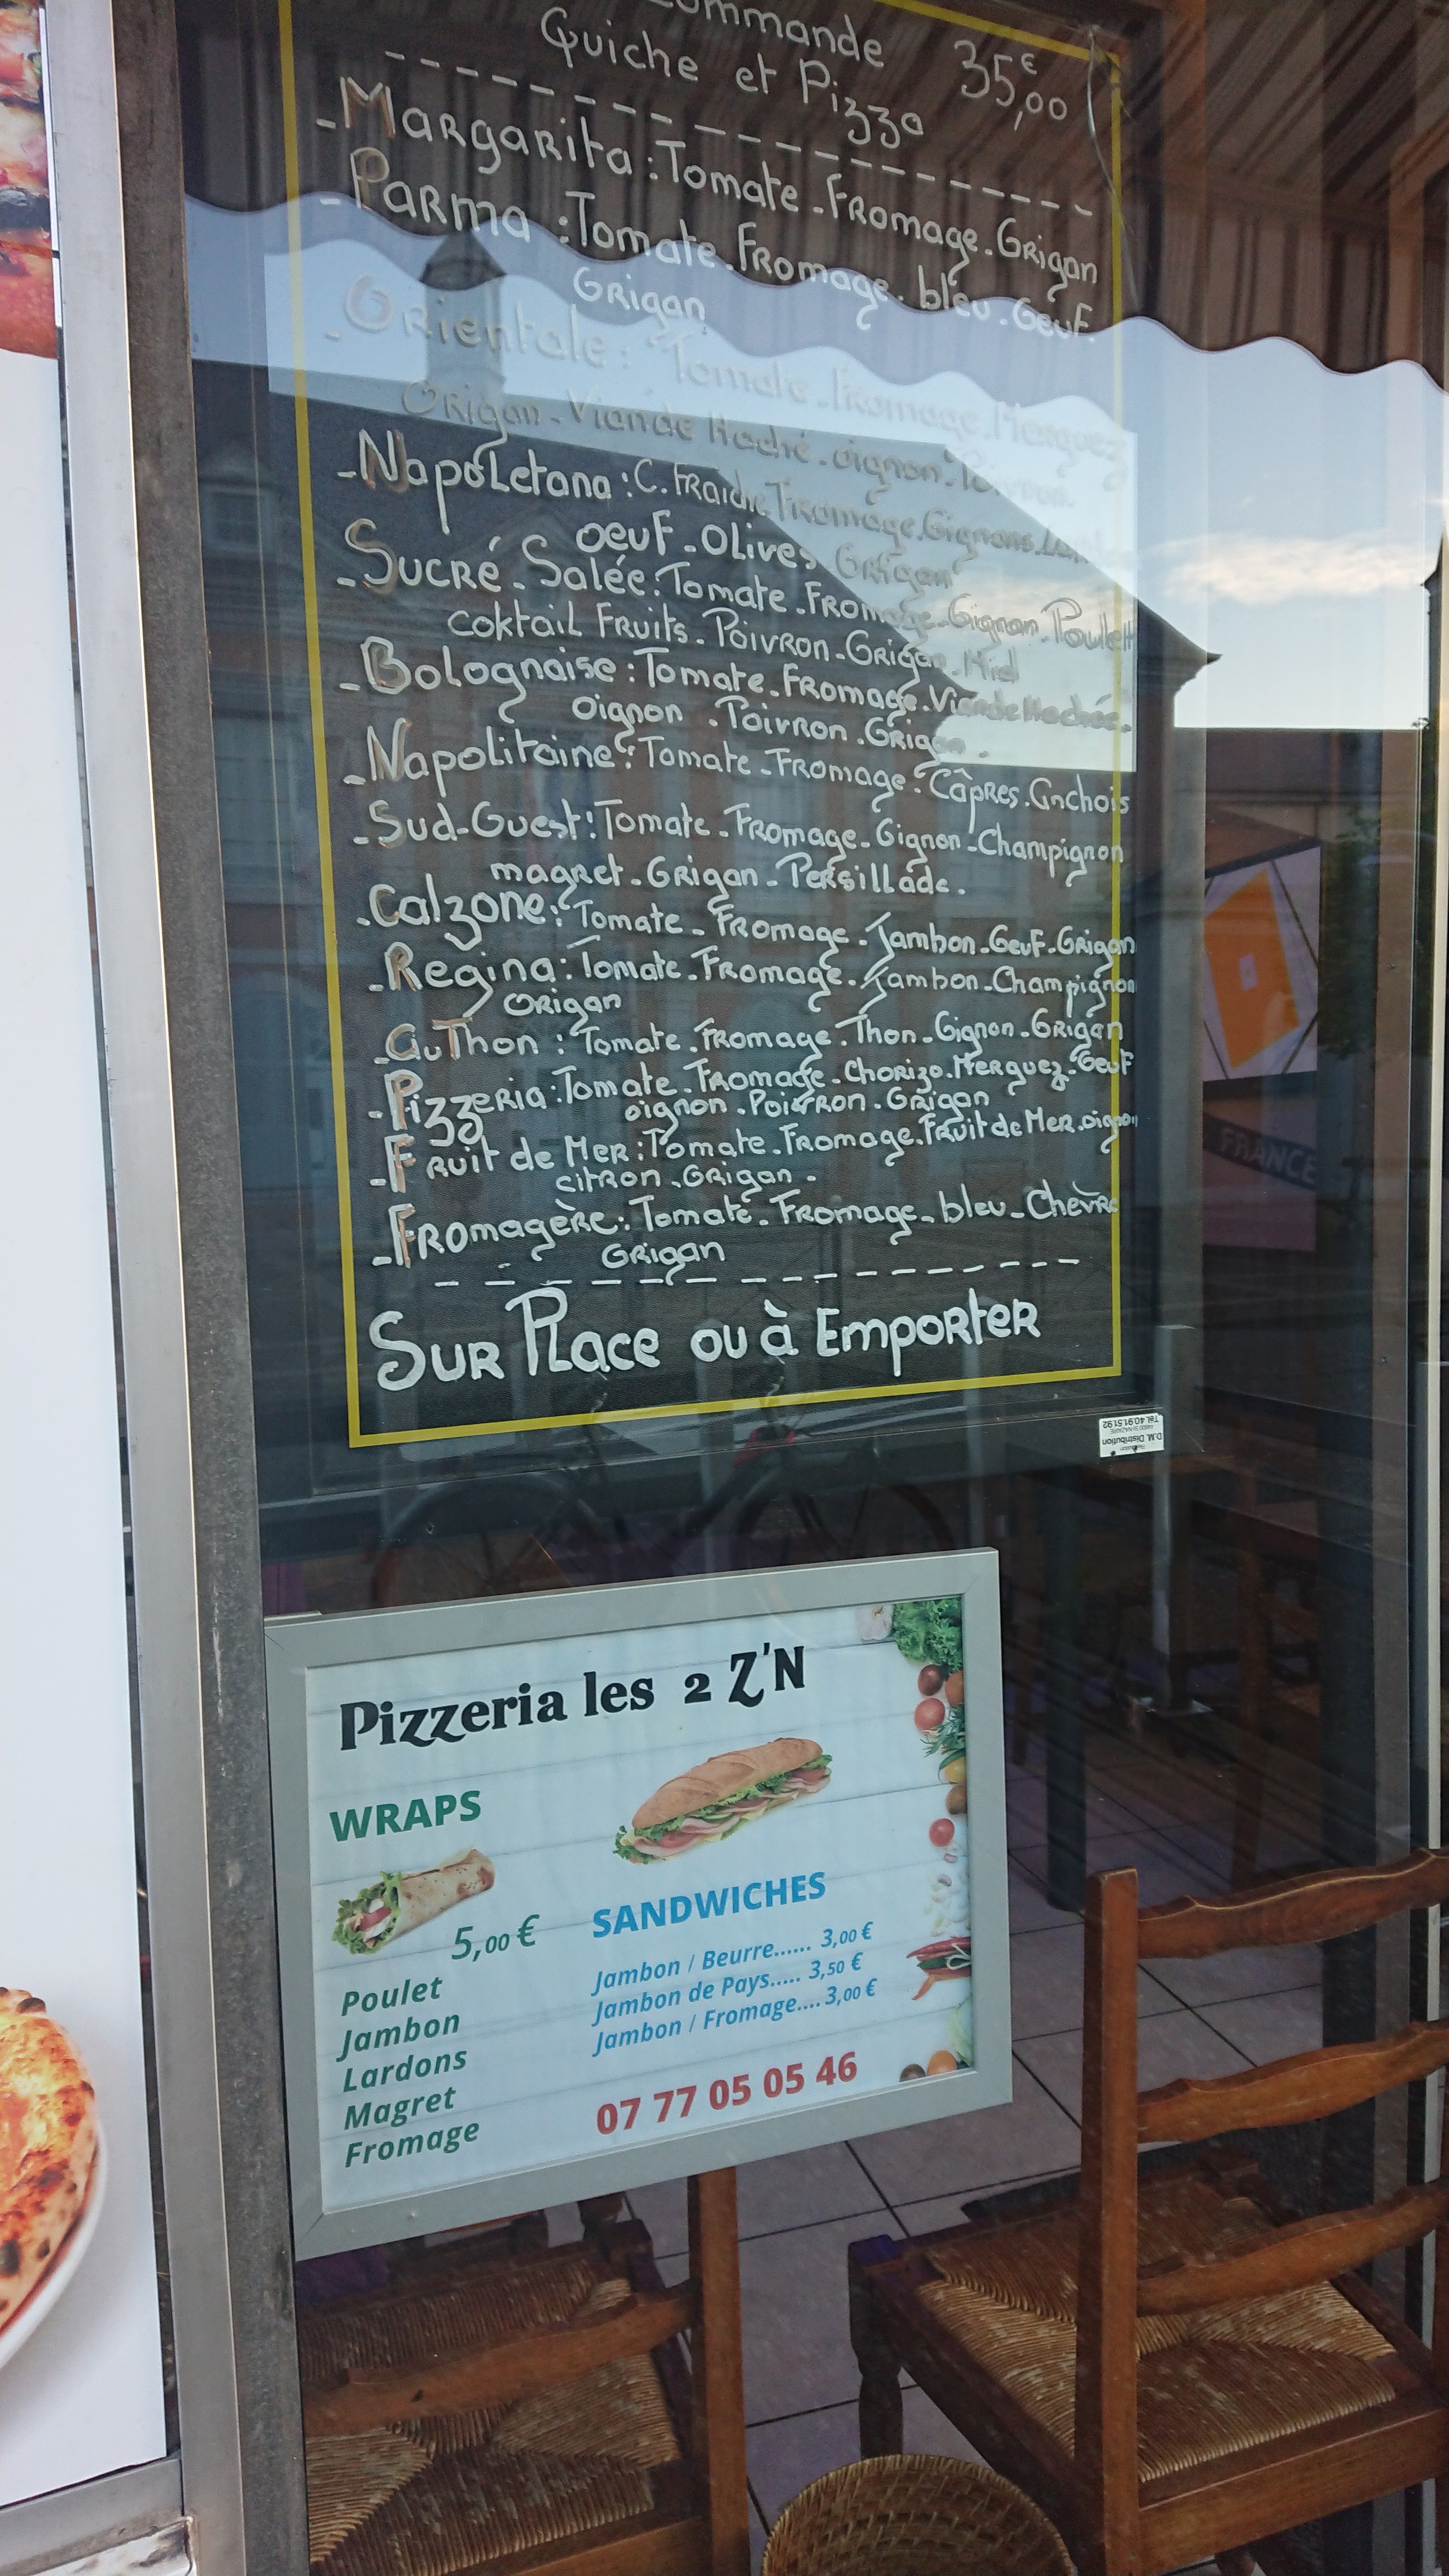 Commande
Quiche et Pizza 35,00€
- Margarita : Tomate - Fromage - Origan
- Parma : Tomate. Fromage. bleu. Oeuf.
Origan
- Orientale : Tomate. Fromage. Merguez
Origan - Viande Haché - oignon - Poivron
- Napoletana : C. FRaiche Fromage. Oignons.
oeuf - Olives Origan
- Sucré - Salée : Tomate - Fromage - Oignon. Poulet
coktail Fruits - Poivron - Origan - Miel
- Bolognaise : Tomate - Fromage. Viande Hachée -
oignon . Poivron . Origan -
- Napolitaine : Tomate - Fromage . Câpres. Anchois
- Sud-Ouest : Tomate - Fromage - Oignon - Champignon
magret - Origan - Persillade.
- Calzone : Tomate - Fromage - Jambon - Oeuf - Origan
- Regina : Tomate - Fromage - Jambon - Champignon
Origan
- Au Thon : Tomate. Fromage. Thon - Oignon - Origan
- Pizzeria : Tomate. Fromage. Chorizo. Merguez. Oeuf
oignon . Poivron . Origan
- Fruit de Mer : Tomate. Fromage. Fruit de Mer. oignon
citron - Origan -
- Fromagère : Tomate - Fromage - bleu - Chèvre
Origan
Sur Place ou à Emporter
D.M. Distribution
Tél. 40.91.51.92
FRANCE
Pizzeria les 2 Z'N
WRAPS
5,00 €
Poulet
Jambon
Lardons
Magret
Fromage
SANDWICHES
Jambon / Beurre...... 3,00 €
Jambon de Pays..... 3,50 €
Jambon / Fromage.... 3,00 €
07 77 05 05 46